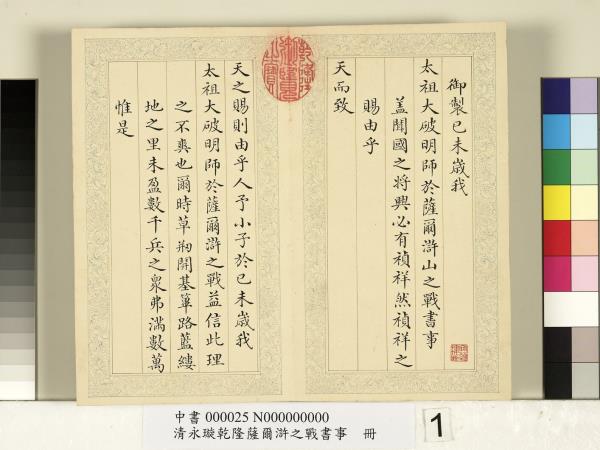 御製己未歲我
太祖大破明師於薩爾滸山之戰書事
蓋聞國之將興必有禎祥然禎祥之
賜由乎
天而致
天之賜則由乎人予小子於己未歲我
太祖大破明師於薩爾滸之戰益信此理
之不爽也爾時草刱開基篳路藍縷
地之里未盈數千兵之衆弗滿數萬
惟是
乾隆御覽之寶
中書 000025 N000000000
清永璇乾隆薩爾滸之戰書事 冊
1